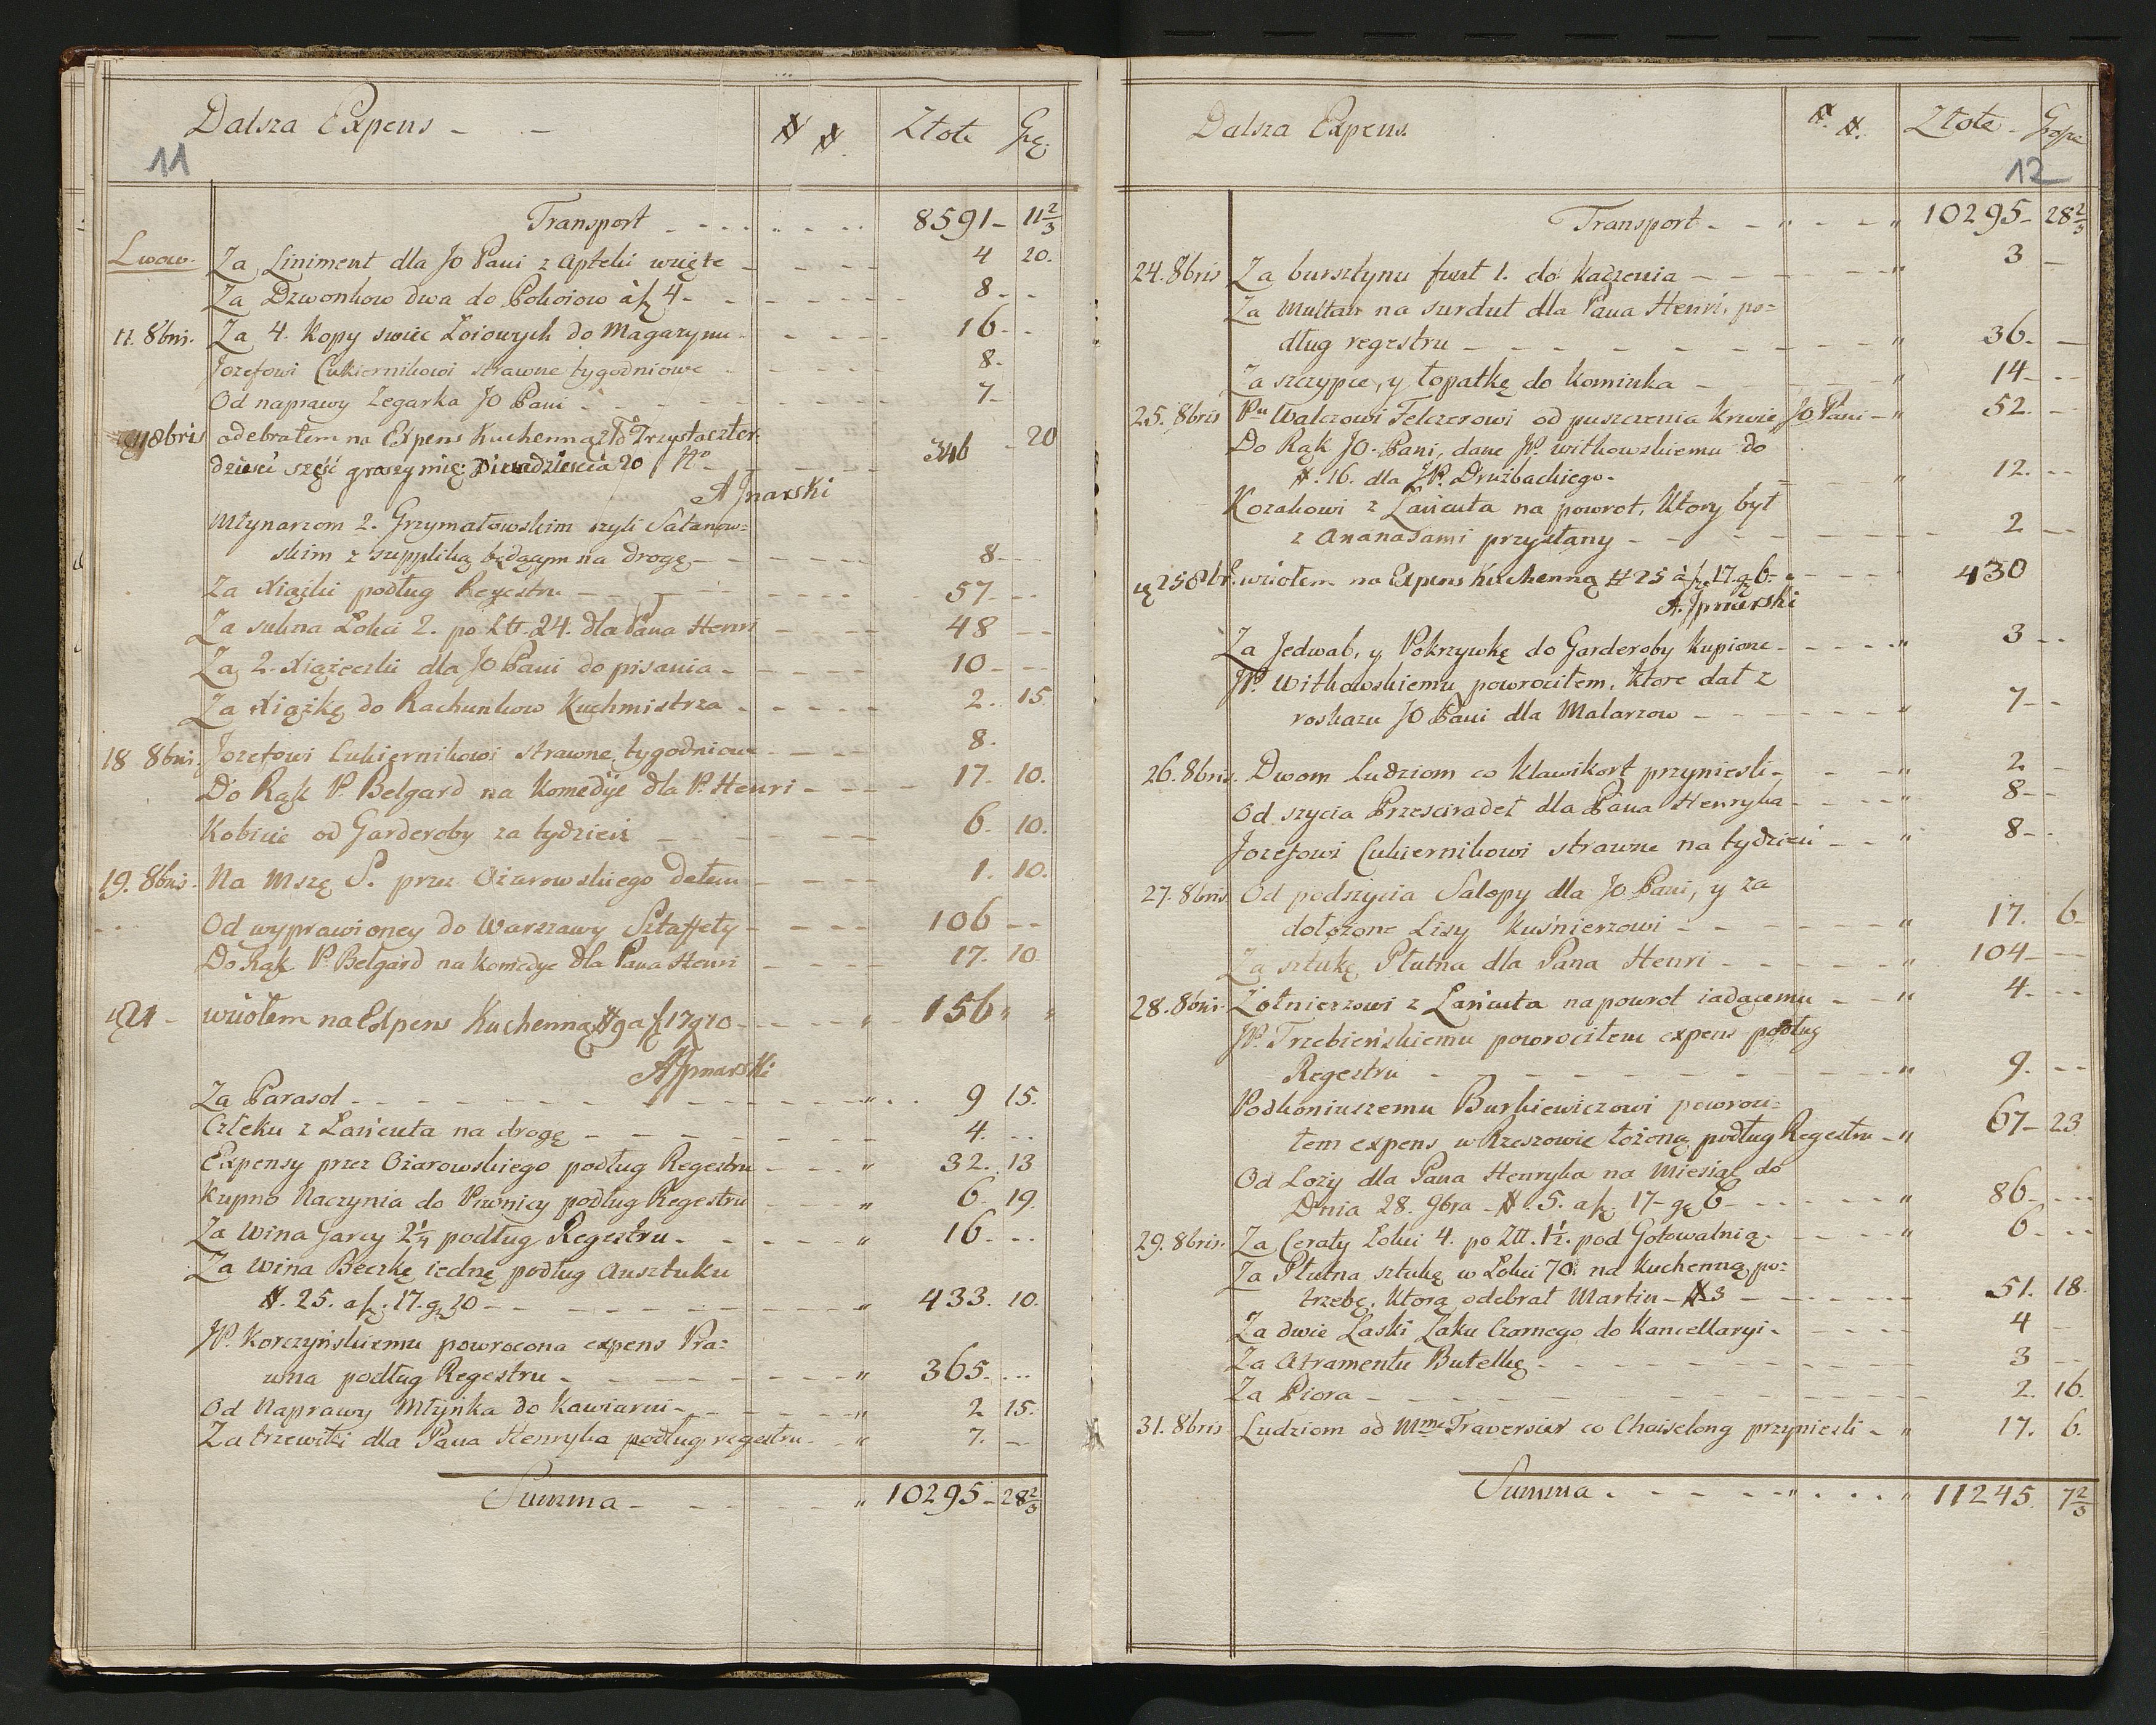 Dalsza Expens - - # #. Złote Grz.
11
Transport - - - - - 8591- 11 2/3
Lwow. Za Liniment dla JO Pani z Apteki wzięte - - - 4 20.
Za Dzwonkow dwa do Pokoiow à f 4 - - - - 8 - -
11. 8bris. Za 4. Kopy swiec Łoiowych do Magazynu - - - 16 - -
Jozefowi Cukiernikowi strawne tygodniowe - - - 8 -
Od naprawy Zegarka JO Pani - - - - 7 -
8bris odebrałem na Expens Kuchenną złto Trzystaczter-
dzieści sześć groszy 20 No - - - 346 - 20
Młynarzom 2. Grzymałowskim czyli Satanow=
skim z suppliką będącym na drogę - - - 8 - -
Za Xiążki podług Regestru - - - - 57 - -
Za sukna Łokci 2. po Ztt. 24. dla Pana Henri - - - 48 - -
Za 2. Xiążeczki dla JO Pani do pisania - - - 10 - -
Za Xiążkę do Rachunkow Kuchmistrza - - - 2. 15
18 8bris. Jozefowi Cukiernikowi strawne tygodniowe - - - 8.
Do Rąk P. Belgard na Komedÿe dla P. Henri - - - 17. 10.
Kobiecie od Garderoby za tydzień - - - 6. 10.
19. 8bris. Na Mszę S. przez Ożarowskiego dałem - - - 1. 10.
- - Od wyprawioney do Warszawy Sztaffety - - - 106 - -
Do Rąk P. Belgard na Komedye dla Pana Henri - - - 17. 10
21 - wziołem na Expens Kuchenną # 9 a f 17 g 10 - - - 156 " "
Za Parasol - - - - - - 9 15.
Człeku z Łańcuta na drogę - - - - 4. - -
Expensy przez Ożarowskiego podług Regestru - - - " 32. 13
Kupno Naczynia do Piwnicy podług Regestru - - - " 6. 19.
Za Wina Garcy 2 1/4 podług Regestru - - - " 16. - -
Za Wina Beczkę iednę podług Ausztuku
#. 25. a f. 17. g 10 - - - - " 433. 10.
JP. Korczyńskiemu powrocona expens Pra=
wna podług Regestru - - - - " 365. ...
Od Naprawy Młynka do Kawiarni - - - " 2 15.
Za trzewiki dla Pana Henryka podług regestru - - " 7. -
Summa - - - - " 10295 - 28 2/3
Dalsza Expens. #. #. Złote - Grosze
12
Transport - - " - - " 10295- 28 2/3
24. 8bris Za bursztynu funt 1. do kadzenia - - - " 3 -
Za Multan na surdut dla Pana Henri, po=
dług regestru - - - - - " 36 - -
Za szczypce, y łopatkę do kominka - - - " 14 - -
25. 8bris Pu Walczowi Felczerowi od puszczenia krwie JO Pani - " 52. -
Do Rąk JO. Pani, dane JP. Witkowskiemu do
#. 16. dla JP. Drużbackiego. - " 12. - -
Kozakowi z Łańcuta na powrot, ktory był
z Ananasami przysłany - - - - 2 - -
25 8br. wziołem na Expens Kuchenną # 25 à f 17. g 6 - - - 430
Za Jedwab, y Pokrzywkę do Garderoby kupione - - - " 3 - -
JP. Witkowskiemu powrociłem, ktore dał z
roskazu JO Pani dla Malarzow - - - " 7 - -
26. 8bris. Dwom Ludziom co klawikort przyniesli - - - " 2 -
Od szycia Przescieradeł dla Pana Henryka - - - " 8 - -
Jozefowi Cukiernikowi strawne na tydzień - - " 8 - -
27. 8bris Od podszycia Salopy dla JO Pani, y za
dołożone Lisy kuśnierzowi - - - - " 17. 6 -
Za sztukę Płutna dla Pana Henri - - - " 104 - -
28. 8bris. Żołnierzowi z Łańcuta na powrot iadącemu - - " 4 - - -
JP. Trzebieńskiemu powrociłem expens podług
Regestru - - - - - " 9. - -
Podkoniuszemu Burkiewiczowi powroci=
łem expens w Rzeszowie łożoną podług Regestru - " 67 - 23
Od Loży dla Pana Henryka na Miesiąc do
Dnia 28. 9bra - #. 5. a f. 17 - g 6 - - - " 86 - - -
29. 8bris. Za Ceraty Łokci 4. po Ztt. 1 1/2. pod Gotowalnią - - - " 6 - - -
Za Płutna sztukę w Łokci 70. na kuchenną po=
trzebę, ktorą odebrał Martin - # 3 - - - 51. 18.
Za dwie Laski Laku Czarnego do Kancellaryi - - - 4 -
Za Atramentu Butelkę - - - - 3 - -
Za Piora - - - - - 2. 16.
31. 8bris Ludziom od Mme Traversier co Chaiselong przyniesli - " 17. 6.
Summa - - - - " - - - " 11245. 7 2/3